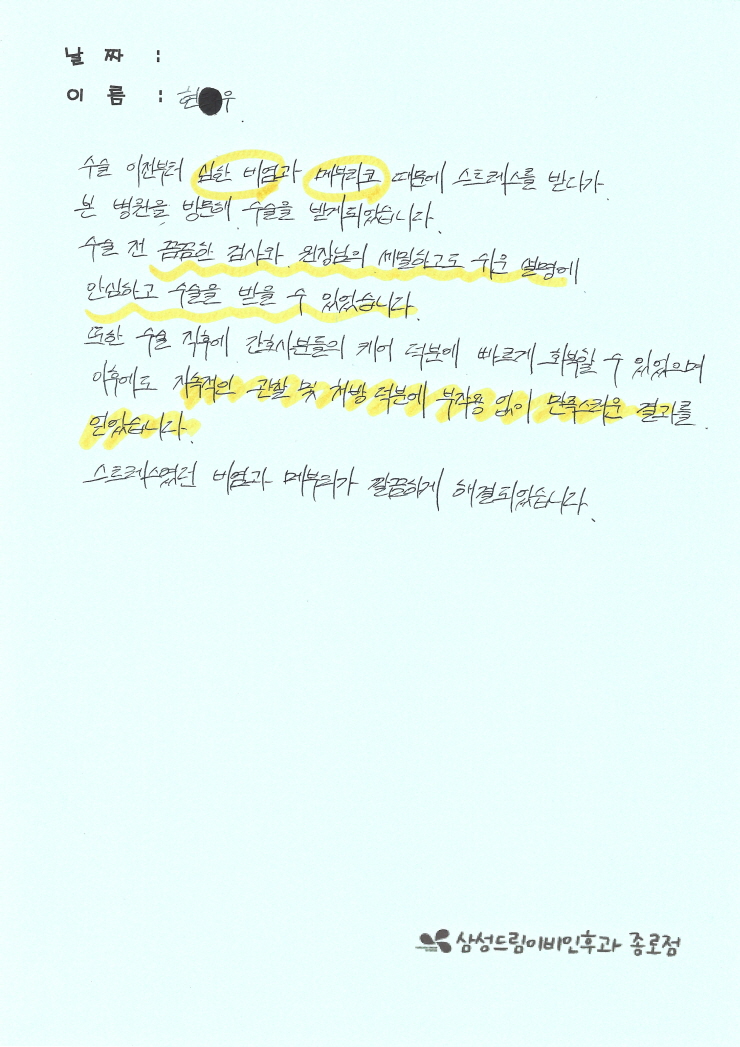 날 짜 :
이 름 : 현●우
수술 이전부터 심한 비염과 메부리코 때문에 스트레스를 받다가
본 병원을 방문해 수술을 받게되었습니다.
수술 전 꼼꼼한 검사와 원장님의 세밀하고도 쉬운 설명에
안심하고 수술을 받을 수 있었습니다.
또한 수술 직후에 간호사분들의 케어 덕분에 빠르게 회복할 수 있었으며
이후에도 지속적인 관찰 및 처방 덕분에 부작용 없이 만족스러운 결과를
얻었습니다.
스트레스였던 비염과 메부리가 깔끔하게 해결되었습니다.
삼성드림이비인후과 종로점